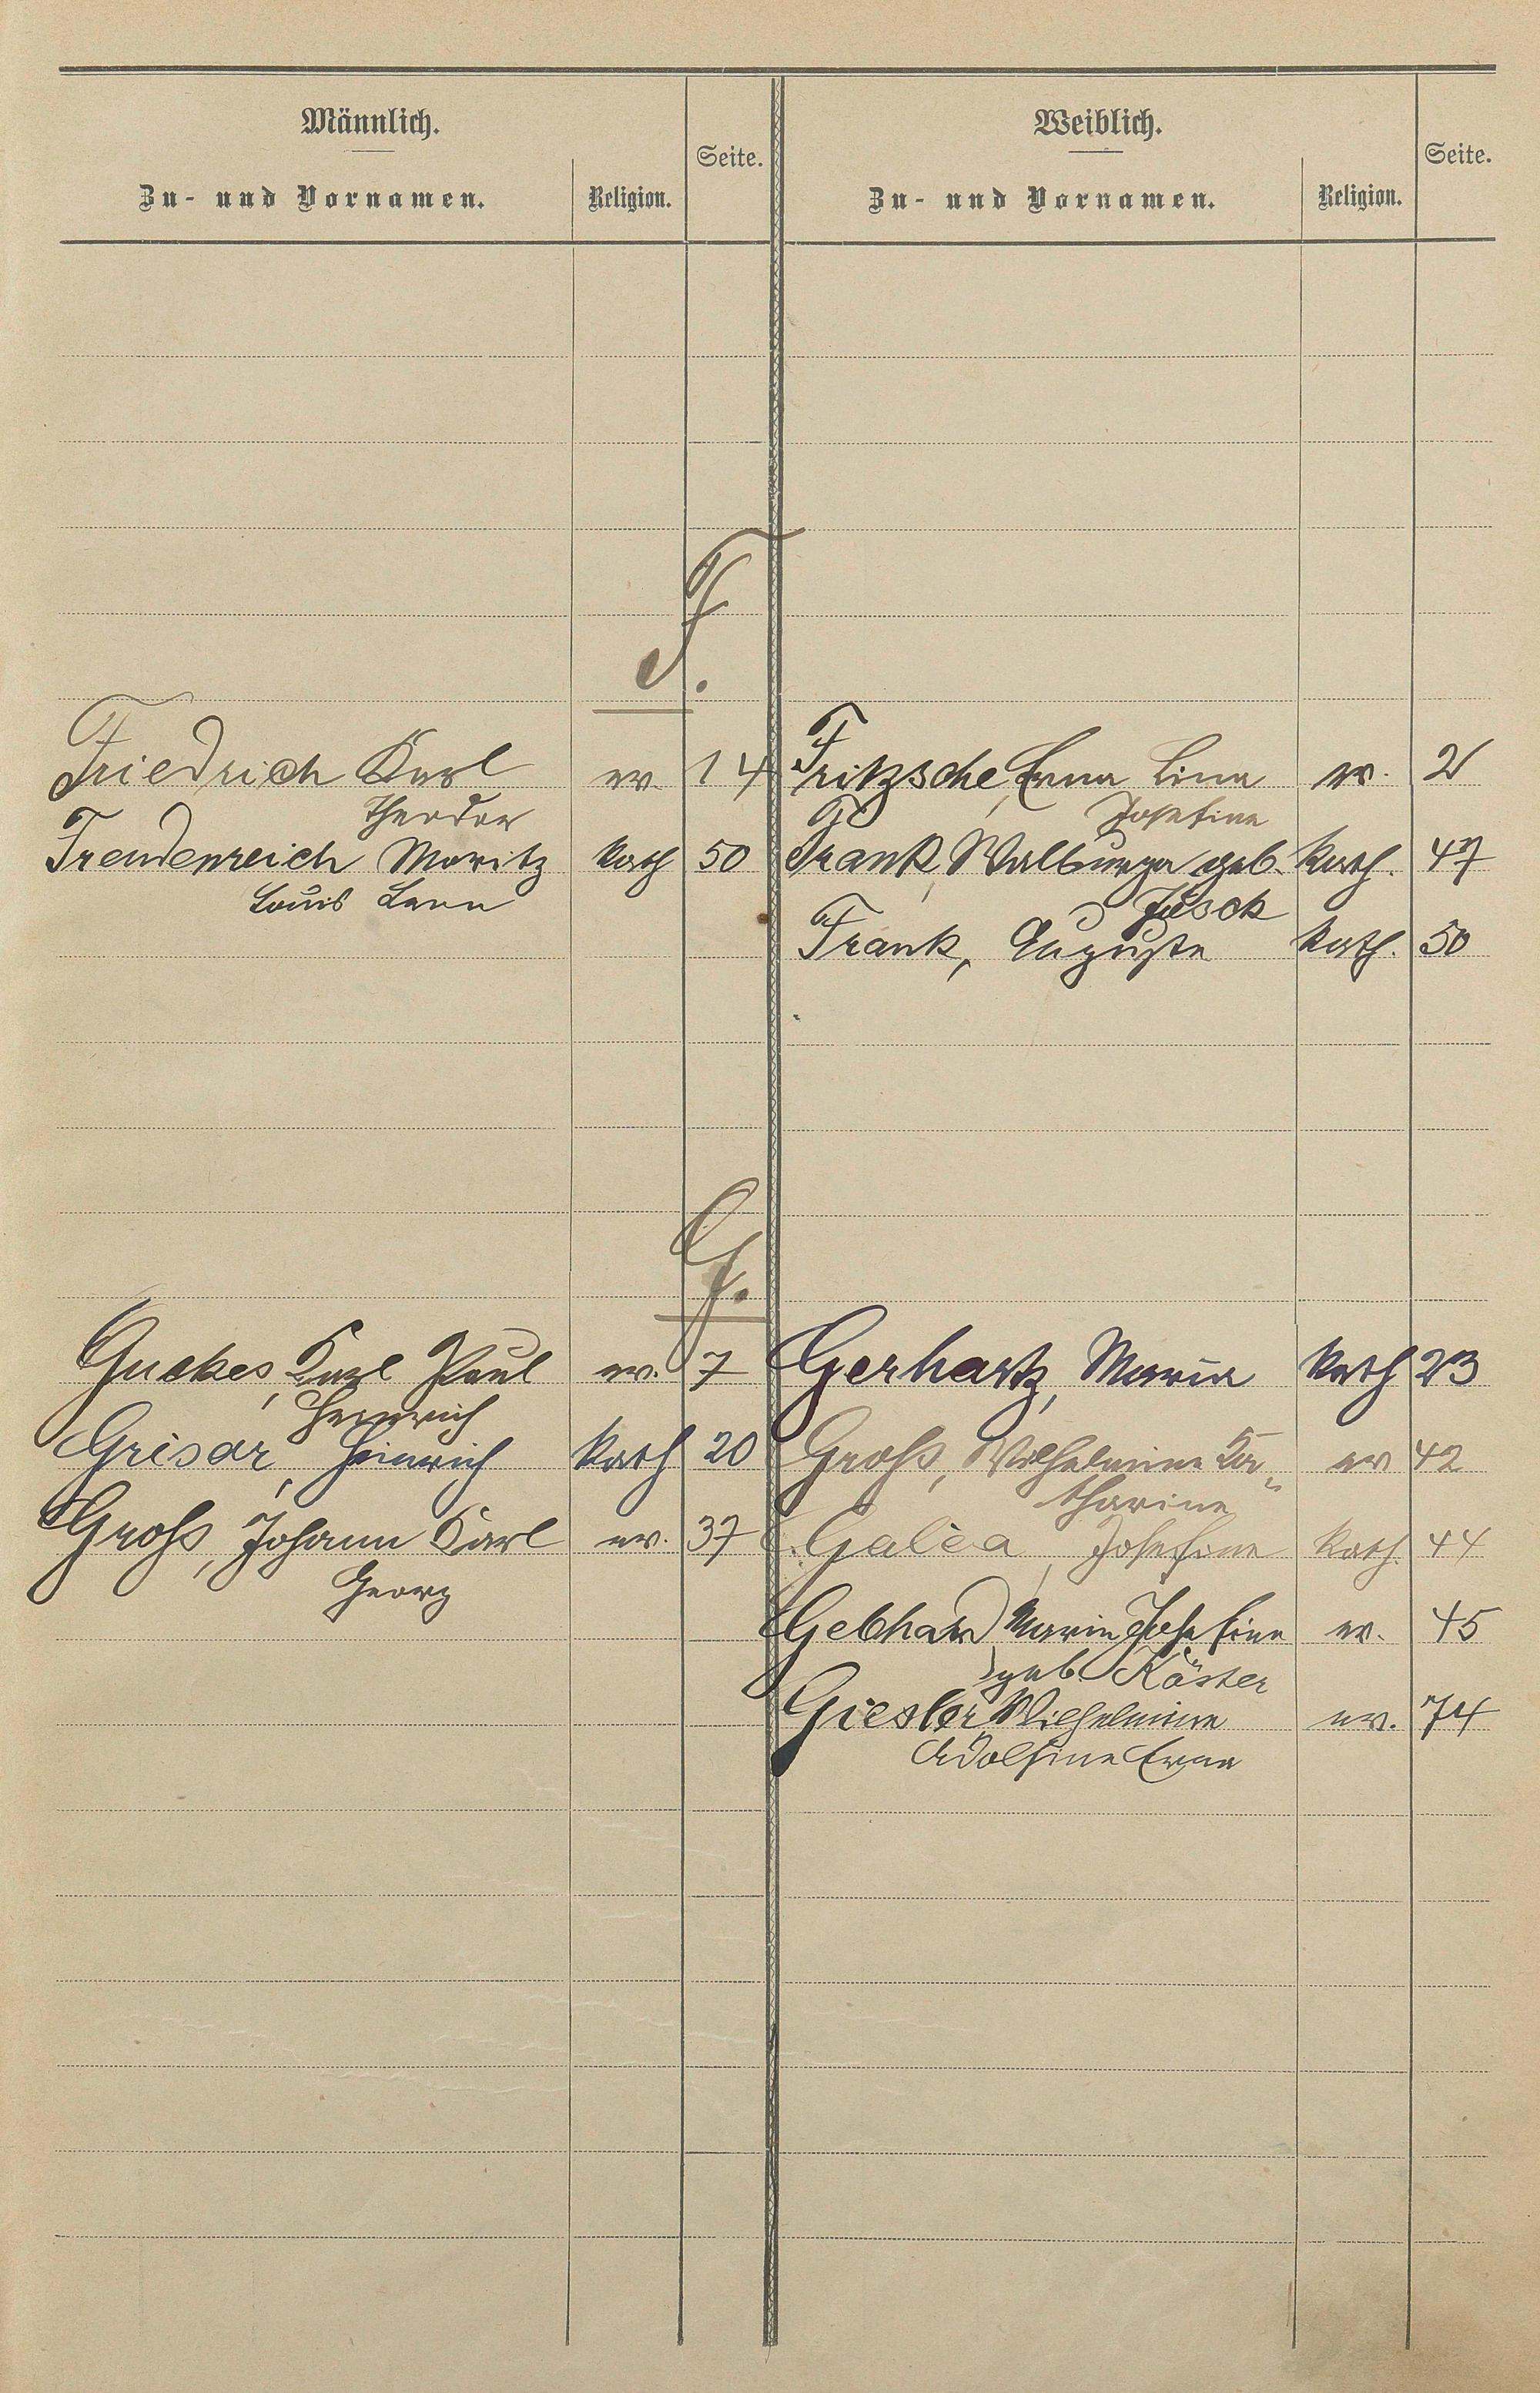 Männlich.
Zu- und Vornamen.
Religion.
Seite.
Weiblich.
Zu- und Vornamen.
Religion.
Seite.
F.
Friedrich Karl ev. 14
Theodor
Freudenreich Moritz Kath 50
Louis
Fritzsche, Erna Lina ev. 2
Josefine
Frank, Walburga geb. Kath. 47
Jusck
Frank, Auguste Kath. 50
G.
Guckes, Karl Paul ev. 7
Heinrich
Grisar, Heinrich Kath 20
Groß, Johann Karl ev. 37
Georg
Gerhartz, Maria Kath 23
Groß, Wilhelmine Ka- ev 42
tharine
Galca, Josefine Kath. 44
Gebhard, Maria Josefine ev. 45
geb. Köster
Giesler Wilhelmine ev. 74
Adolfine Erna